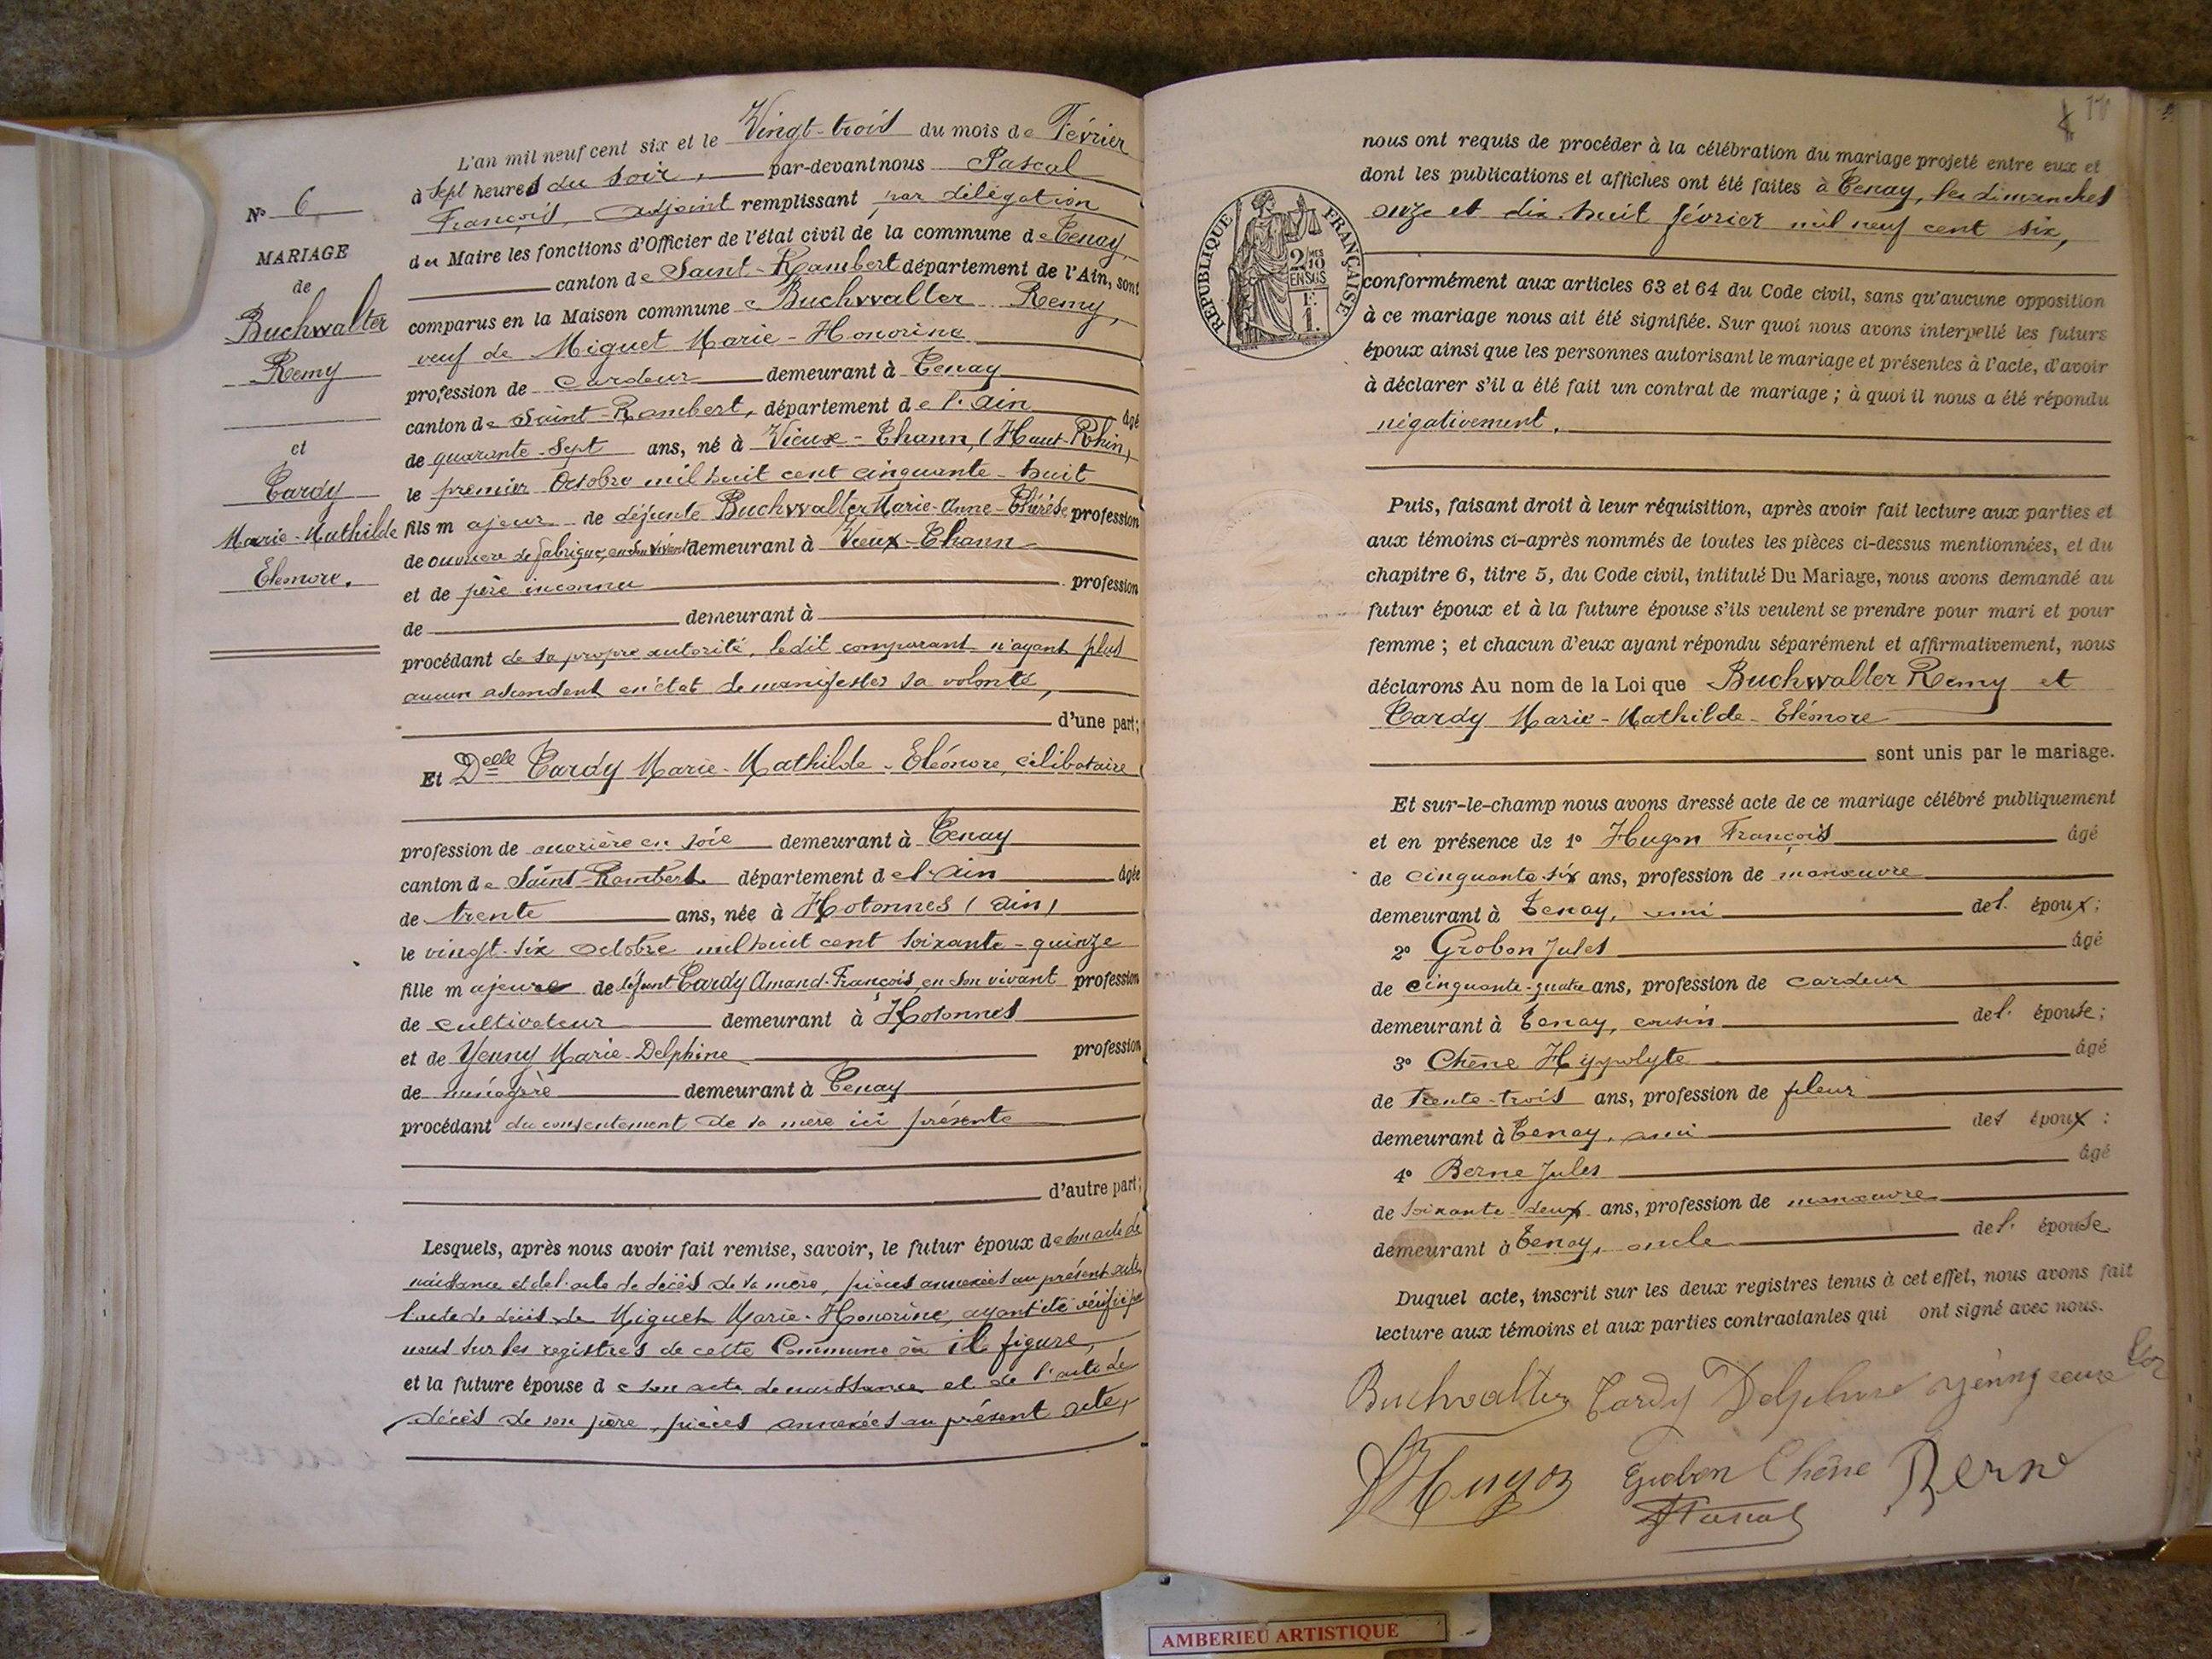 L'an mil neuf cent six et le Vingt-trois du mois de Février
à sept heures du soir, par-devant nous Pascal
François, adjoint remplissant par délégation
du Maire les fonctions d'Officier de l'état civil de la commune de Tenay,
canton de Saint-Rambert département de l'Ain, sont
comparus en la Maison commune Buchwalter Remy,
veuf de Miguet Marie-Honorine
profession de cardeur demeurant à Tenay
canton de Saint-Rambert, département de l'Ain âgé
de quarante-sept ans, né à Vieux-Thann, (Haut-Rhin)
le premier Octobre mil huit cent cinquante-huit
fils majeur de défunte Buchwalter Marie-Anne-Thérèse profession
de ouvrière de fabrique, en son vivant demeurant à Vieux-Thann
et de père inconnu profession
de demeurant à
procédant de sa propre autorité, ledit comparant n'ayant plus
aucun ascendant en état de manifester sa volonté,
d'une part;
Et Delle Tardy Marie-Mathilde-Eléonore, célibataire
profession de ouvrière en soie demeurant à Tenay
canton de Saint-Rambert département de l'Ain âgée
de trente ans, née à Hotonnes (Ain)
le vingt-six octobre mil huit cent soixante-quinze
fille majeure de défunt Tardy Amand-François, en son vivant profession
de cultivateur demeurant à Hotonnes
et de Yenny Marie-Delphine profession
de ménagère demeurant à Tenay
procédant du consentement de sa mère ici présente
d'autre part;
Lesquels, après nous avoir fait remise, savoir, le futur époux de son acte de
naissance et de l'acte de décès de sa mère, pièces annexées au présent acte,
l'acte de décès de Miguet Marie-Honorine, ayant été vérifié par
nous sur les registres de cette Commune où il figure,
et la future épouse de son acte de naissance et de l'acte de
décès de son père, pièces annexées au présent acte,
N° 6
MARIAGE
de
Buchwalter
Remy
et
Tardy
Marie-Mathilde
Eléonore.
nous ont requis de procéder à la célébration du mariage projeté entre eux et
dont les publications et affiches ont été faites à Tenay, les dimanches
onze et dix-huit février mil neuf cent six,
RÉPUBLIQUE FRANÇAISE
2/10 MES
EN SUS
1 F.
conformément aux articles 63 et 64 du Code civil, sans qu'aucune opposition
à ce mariage nous ait été signifiée. Sur quoi nous avons interpellé les futurs
époux ainsi que les personnes autorisant le mariage et présentes à l'acte, d'avoir
à déclarer s'il a été fait un contrat de mariage; à quoi il nous a été répondu
négativement.
Puis, faisant droit à leur réquisition, après avoir fait lecture aux parties et
aux témoins ci-après nommés de toutes les pièces ci-dessus mentionnées, et du
chapitre 6, titre 5, du Code civil, intitulé Du Mariage, nous avons demandé au
futur époux et à la future épouse s'ils veulent se prendre pour mari et pour
femme; et chacun d'eux ayant répondu séparément et affirmativement, nous
déclarons Au nom de la Loi que Buchwalter Remy et
Tardy Marie-Mathilde-Eléonore
sont unis par le mariage.
Et sur-le-champ nous avons dressé acte de ce mariage célébré publiquement
et en présence de 1° Hugon François âgé
de cinquante-six ans, profession de manœuvre
demeurant à Tenay, ami de l'époux;
2° Grobon Jules âgé
de cinquante-quatre ans, profession de cardeur
demeurant à Tenay, cousin de l'épouse;
3° Chêne Hyppolyte âgé
de trente-trois ans, profession de fileur
demeurant à Tenay, ami des époux:
4° Berne Jules âgé
de soixante-deux ans, profession de manœuvre
demeurant à Tenay, oncle de l'épouse
Duquel acte, inscrit sur les deux registres tenus à cet effet, nous avons fait
lecture aux témoins et aux parties contractantes qui ont signé avec nous.
Buchwalter Tardy Delphine yenny
Hugon Grobon Chêne Berne
Pascal
AMBERIEU ARTISTIQUE